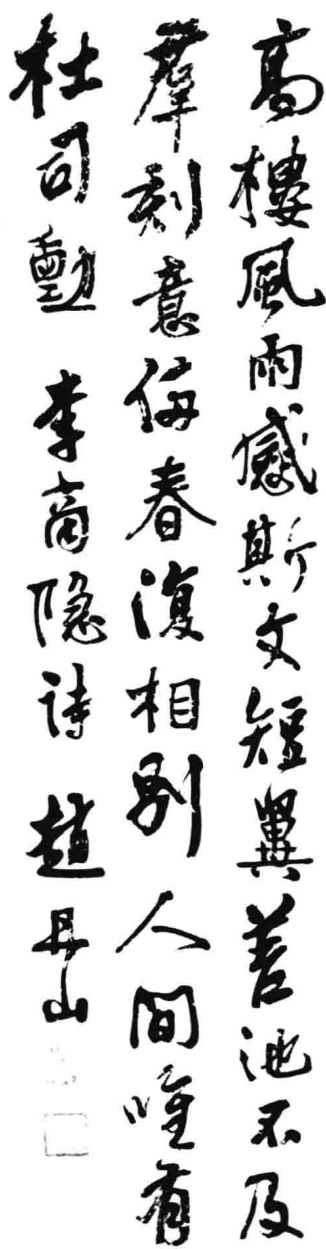 高樓風雨感斯文短翼差池不及
羣刻意傷春復相別人間唯有
杜司勳 李商隐詩 趙丹山